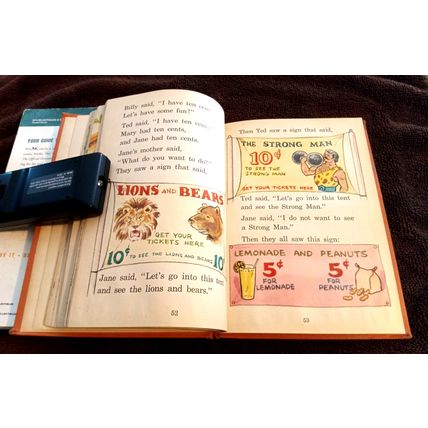 YOUR GUIDE
Billy said, "I have ten
Let's have some fun!"
Ted said, "I have ten
Mary had ten cents,
and Jane had ten cents.
Jane's mother said,
"What do you want to do?"
They saw a sign that said,
LIONS AND BEARS
GET YOUR
TICKETS HERE
10¢ TO SEE THE LIONS AND BEARS 10¢
Jane said, "Let's go into this tent
and see the lions and bears."
52
Then Ted saw a sign that said,
THE STRONG MAN
10¢
TO SEE
THE
STRONG MAN
GET YOUR TICKETS HERE
Ted said, "Let's go into this tent
and see the Strong Man."
Jane said, "I do not want to see
a Strong Man."
Then they all saw this sign:
LEMONADE AND PEANUTS
5¢ 5¢
FOR FOR
LEMONADE PEANUTS
53